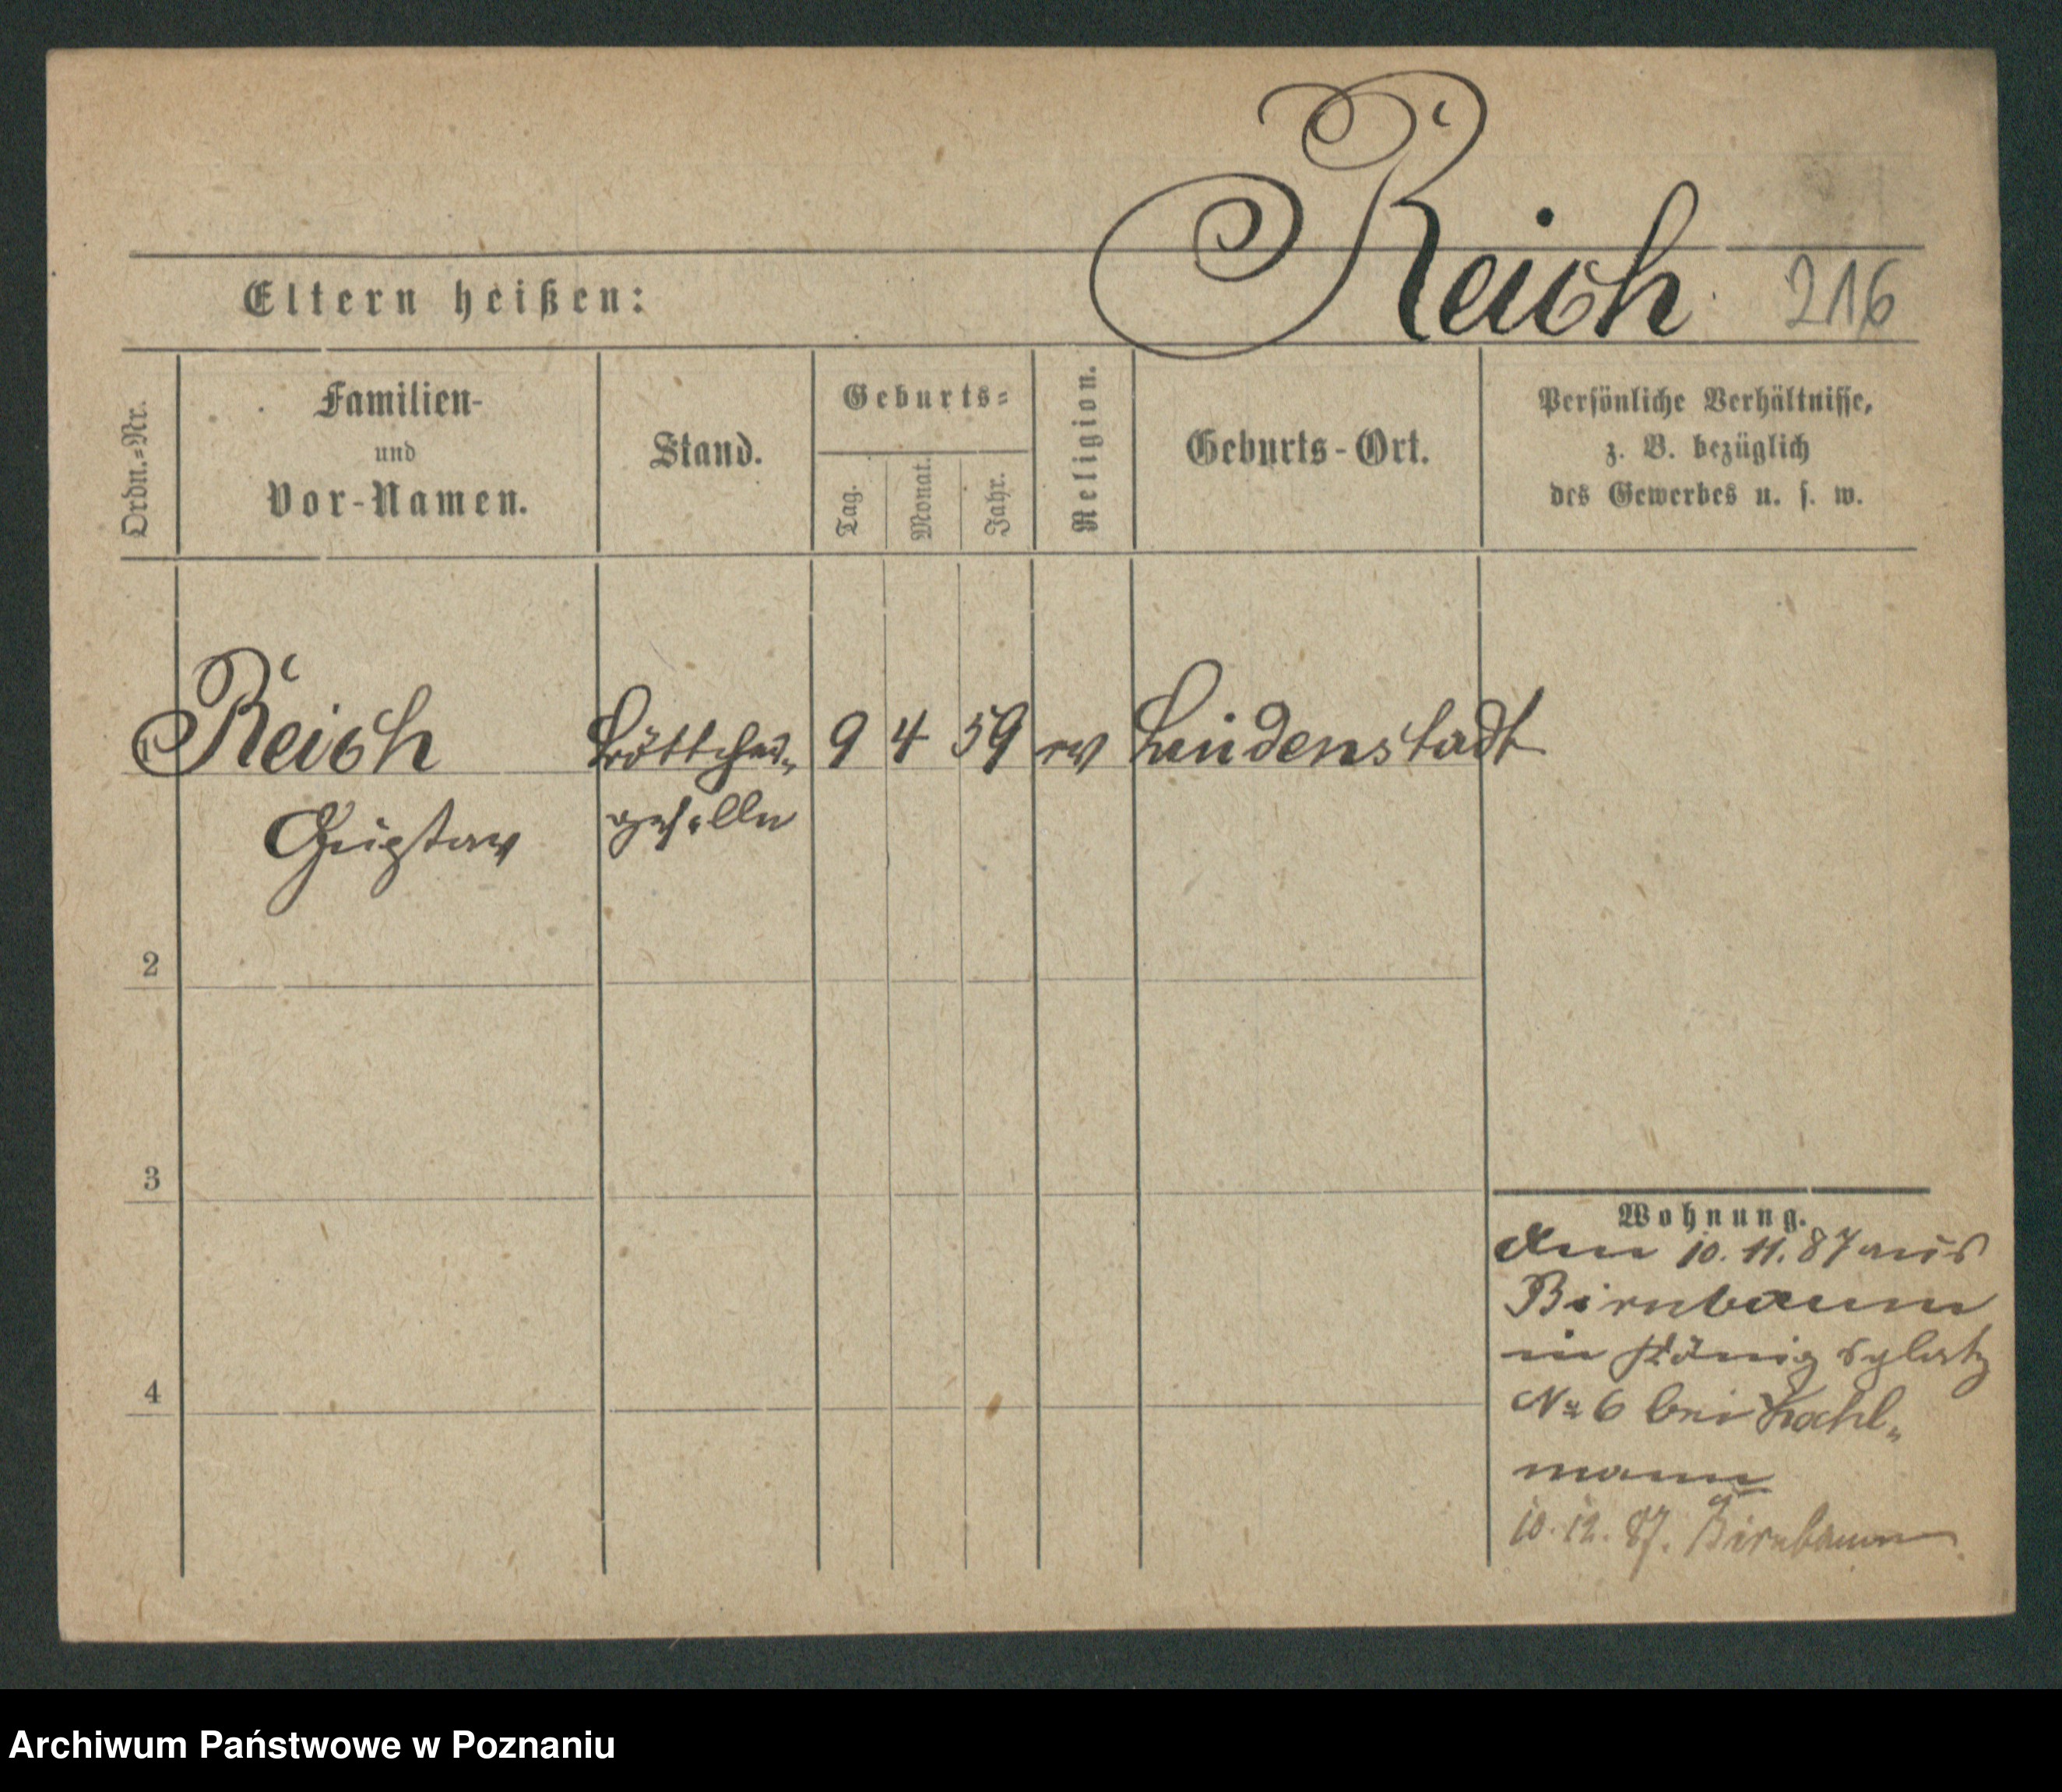 Reich
216
Eltern heißen:
Ordn.-Nr.
Familien-
und
Vor-Namen.
Stand.
Geburts-
Tag.
Monat.
Jahr.
Religion.
Geburts-Ort.
Persönliche Verhältnisse,
z. B. bezüglich
des Gewerbes u. s. w.
1 Reich Böttcher- 9 4 59 ev Lindenstadt
Gustav geselle
2
3
4
Wohnung.
Den 10.11.87 aus
Birnbaum
in Königsplatz
No 6 bei Kahl-
mann
10.12.87. Birnbaum
Archiwum Państwowe w Poznaniu